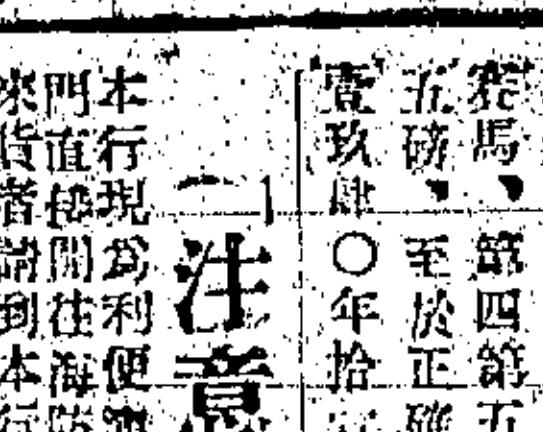 賽馬、第四第五
五磅、至於正
壹玖肆〇年拾
注意
本行現為利便
門直接開往海
來貨者請到本行